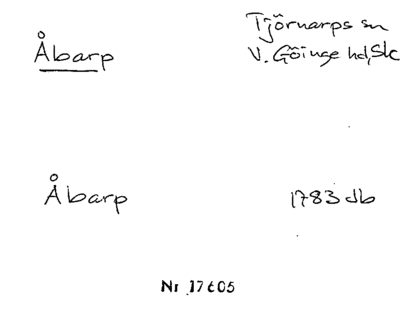 Åbarp
Tjörnarps sn
V. Göinge hd, Sk
Åbarp
1783 db
Nr 17605